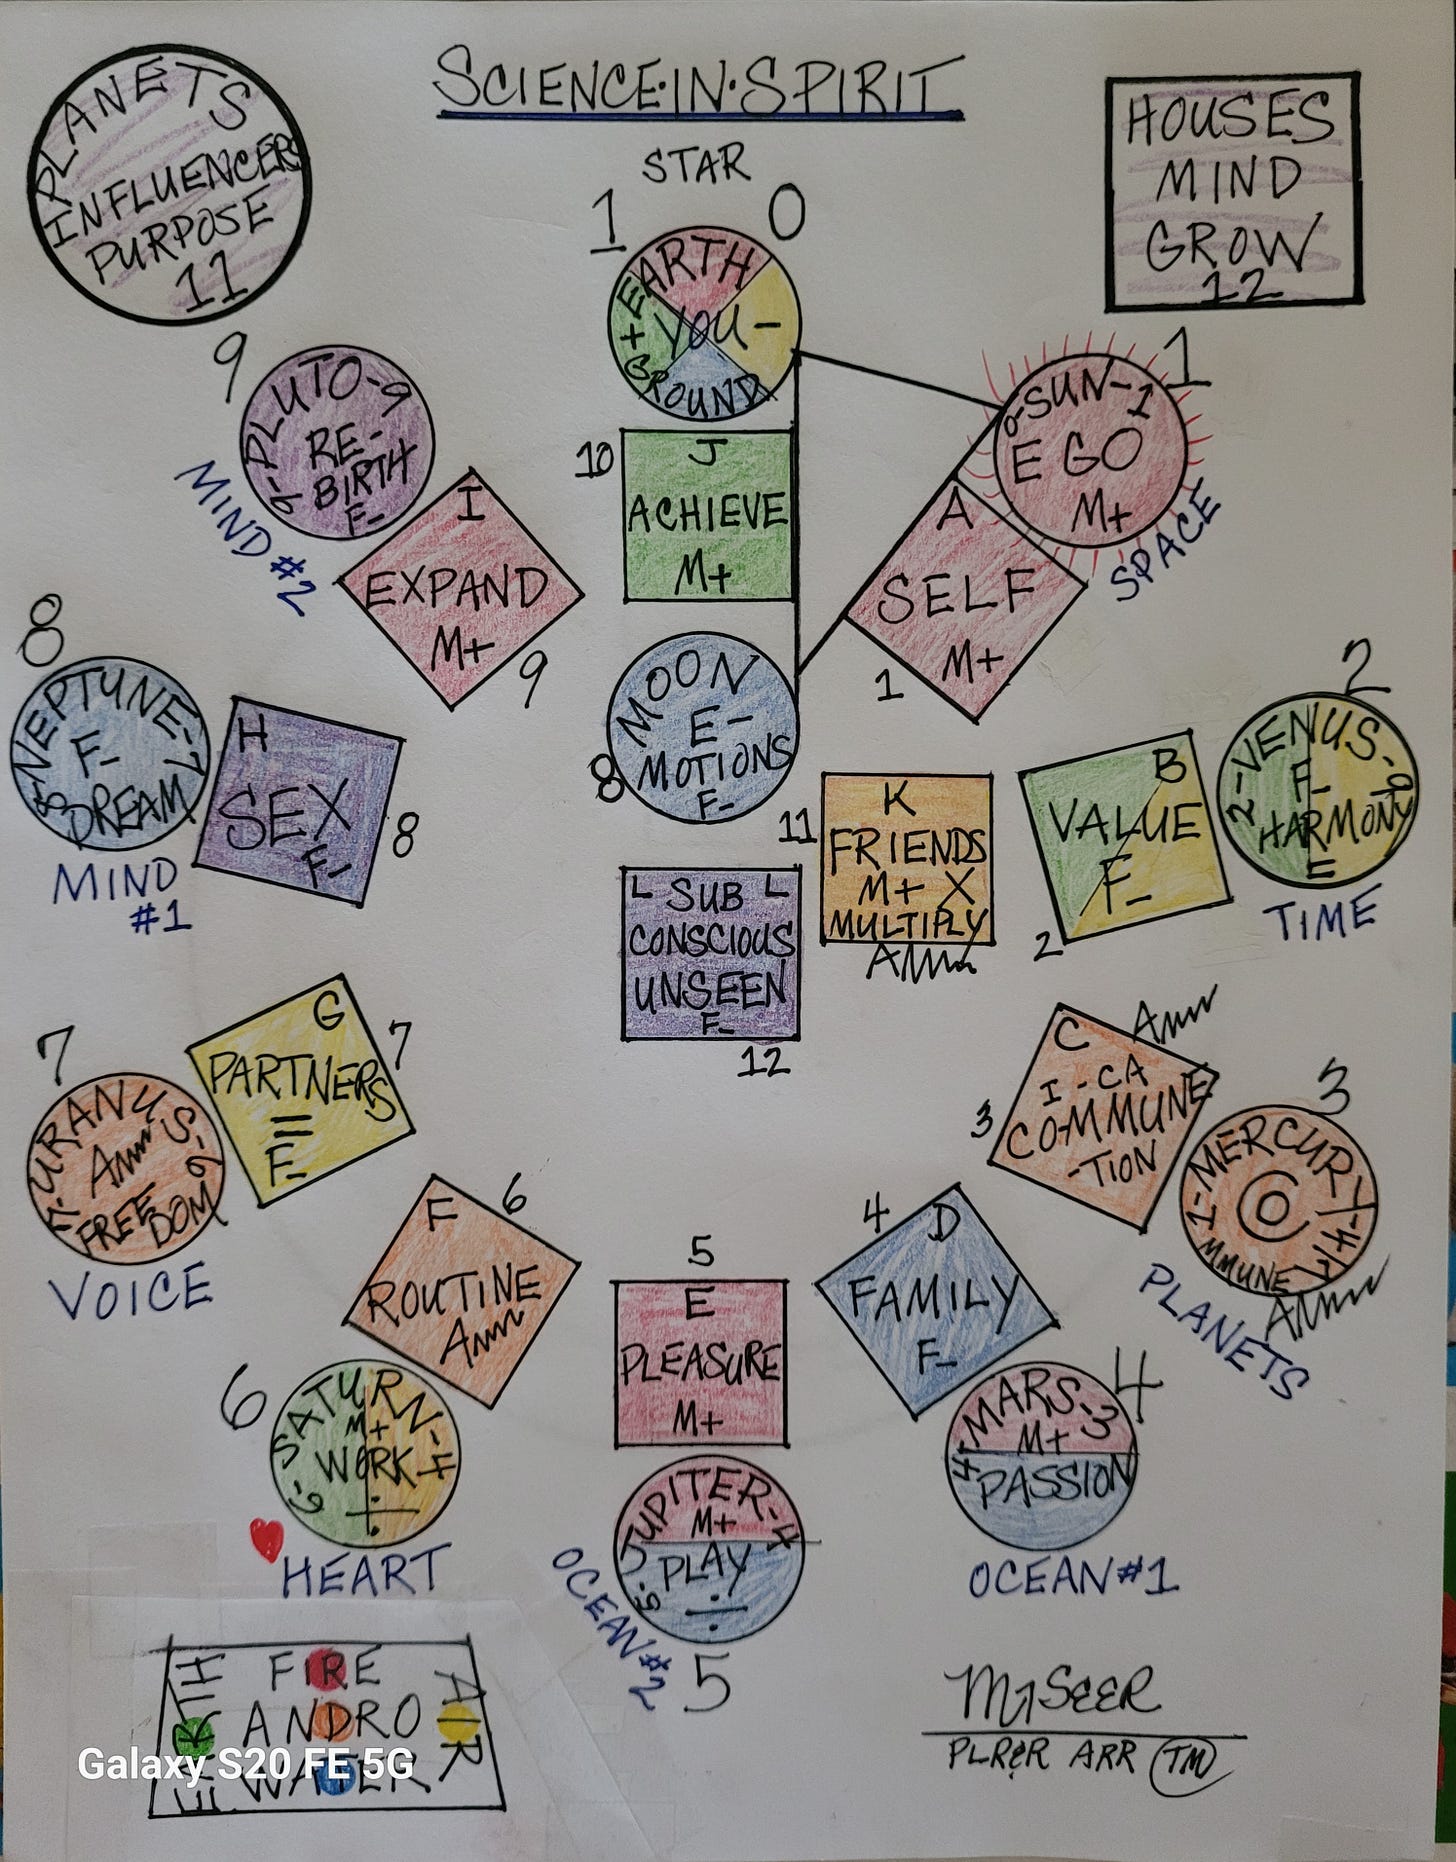 SCIENCE·IN·SPIRIT
PLANETS
INFLUENCERS
PURPOSE
11
HOUSES
MIND
GROW
12
STAR
1 0
EARTH
+ YOU -
GROUND
10
J
ACHIEVE
M+
MOON
E-
MOTIONS
F-
8
1
0-SUN-1
EGO
M+
SPACE
A
SELF
M+
1
2
2-VENUS-9
F-
HARMONY
E
TIME
B
VALUE
F-
2
11
K
FRIENDS
M+ X
MULTIPLY
L SUB L
CONSCIOUS
UNSEEN
F-
12
3
MERCURY
CO
MMUNE
PLANETS
C
I-CA
COMMUNE
-TION
3
4
MARS-3
M+
PASSION
OCEAN#1
4
D
FAMILY
F-
5
E
PLEASURE
M+
JUPITER-4
M+
PLAY
÷
5
OCEAN#2
6
SATURN-4
M+
WORK
÷
HEART
F
6
ROUTINE
7
URANUS-6
FREEDOM
VOICE
G
7
PARTNERS
=
F-
8
8-NEPTUNE-7
F-
DREAM
MIND
#1
H
SEX
F-
8
9
PLUTO-9
RE-
BIRTH
F-
MIND #2
I
EXPAND
M+
9
EARTH
FIRE
ANDRO
WATER
AIR
Galaxy S20 FE 5G
ARR TM